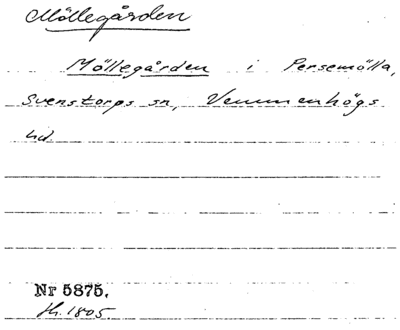 Möllegården
Möllegården i Persemölla,
Svenstorps sn, Vemmenhögs
hd
Nr 5875.
fh. 1805.